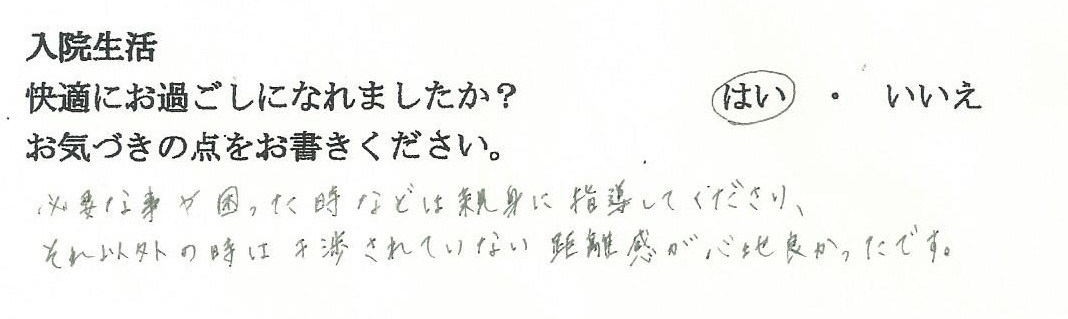 入院生活
快適にお過ごしになれましたか？ はい ・ いいえ
お気づきの点をお書きください。
必要な事や困った時などは親身に指導してくださり、
それ以外の時は干渉されていない距離感が心地良かったです。